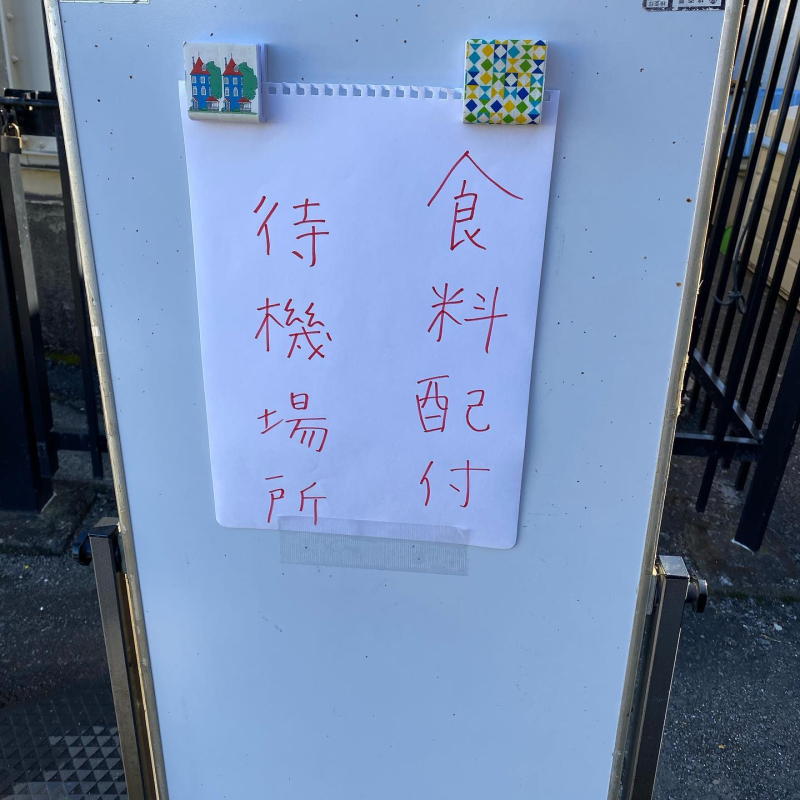 食料配付
待機場所